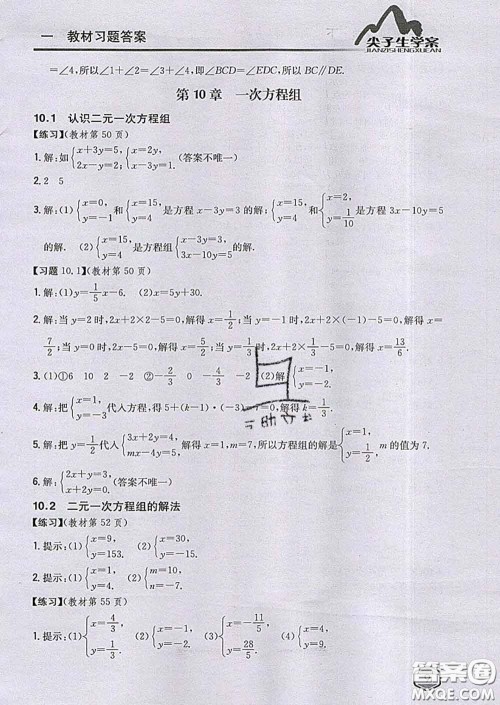 一 教材习题答案
尖子生学案
JIANZISHENGXUEAN
=∠4,所以∠1+∠2=∠3+∠4,即∠BCD=∠EDC,所以 BC∥DE.
第 10 章 一次方程组
10.1 认识二元一次方程组
【练习】(教材第 50 页)
1.解:如{x+3y=5, 2x-y=2; {x=2y, x-3y=1. (答案不唯一)
2.2 5
3.解:(1){x=0, y=-1 和{x=15, y=4 是方程 x-3y=3 的解;{x=15, y=4 和{x=0, y=1/10 是方程 3x-10y=5
的解. (2){x=15, y=4 是方程组{x-3y=3, 3x-10y=5 的解.
【习题 10.1】(教材第 50 页)
1.解:(1)y=1/5x-6. (2)x=5y+30.
2.解:当 y=2 时,2x+2×2-5=0,解得 x=1/2;当 y=-1 时,2x+2×(-1)-5=0,解得 x=
7/2;当 y=0 时,2x-5=0,解得 x=5/2;当 y=1/3 时,2x+2×1/3-5=0,解得 x=13/6.
3.(1)①6 10 2 -2 ②-2/3 0 -4/3 -2 (2)解{x=-1, y=-2.
4.解:把{x=1, y=-3 代入方程,得 5+(k-1)·(-3)-7=0,解得 k=1/3.
5.解:把 y=-1/2 代入{3x+2y=4, mx+4y=5,解得 x=1,m=7,所以方程组的解是{x=1, y=-1/2, m 的值为 7.
6.解:{2x+y=3, x+y=0. (答案不唯一)
10.2 二元一次方程组的解法
【练习】(教材第 52 页)
1.提示:(1){x=9, y=153. (2){x=30, y=-15.
2.提示:(1){x=1, y=4. (2){m=10, n=-7.
【练习】(教材第 55 页)
1.提示:(1){x=4/3, y=1/3. (2){x=-1, y=-2. (3){x=6, y=-2. (4){x=-11/5, y=-28/5.
答案圈
MXQE.COM